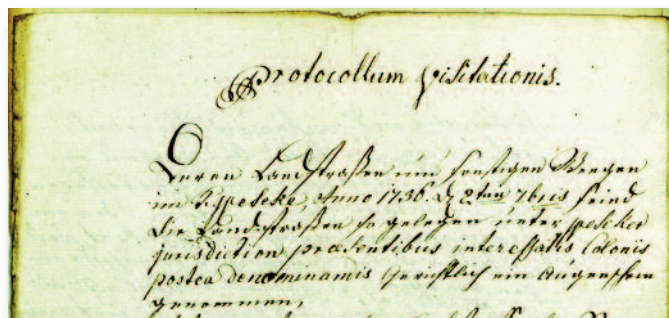 Protocollum visitationis.
Deren Landstraßen und sonstigen Weegen
im Anno 1736. d 2ten 7bris seind
die Landstraßen so gelegen unter
jurisdiction praesentibus interessatis Coloniis
postea denominamis gerichtlich ein augenschein
genommen,